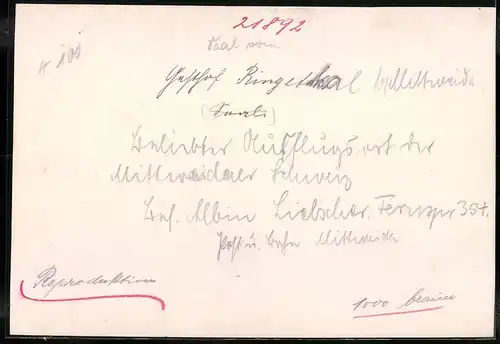 21892
# 100
Saal vom
Gasthof Ringethal b/Mittweida
(Saal)
Beliebter Ausflugsort der
Mittweidaer Schweiz
Bes. Albin Liebscher. Fernspr 354.
Post u. Bahn Mittweida
Reproduktion
1000 braun